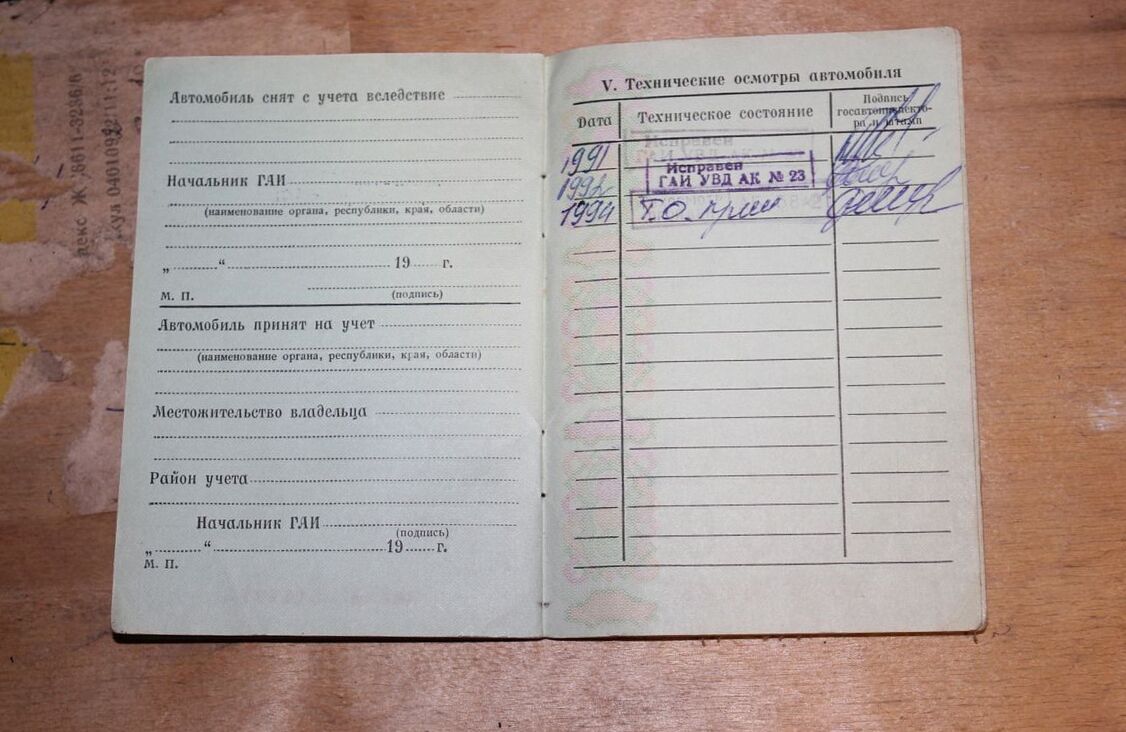 Автомобиль снят с учета вследствие
Начальник ГАИ
(наименование органа, республики, края, области)
„ “ 19 г.
М. П. (подпись)
Автомобиль принят на учет
(наименование органа, республики, края, области)
Местожительство владельца
Район учета
Начальник ГАИ
(подпись)
„ “ 19 г.
М. П.
V. Технические осмотры автомобиля
Дата Техническое состояние Подпись госавтоинспекто-
ра и штамп
1991 Исправен
1992 Исправен
ГАИ УВД АК № 23
1994 Т.О.